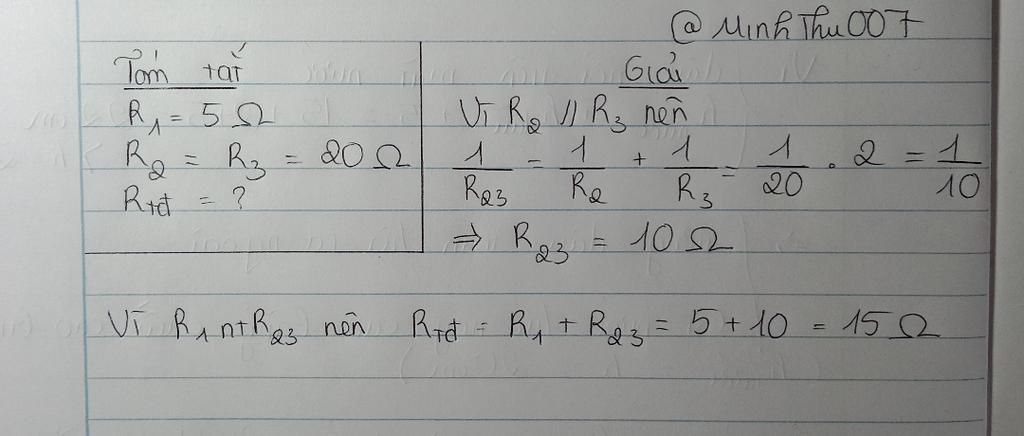 @MinhThu007
Tóm tắt
R₁ = 5 Ω
R₂ = R₃ = 20 Ω
Rtđ = ?
Giải
Vì R₂ // R₃ nên
1/R₂₃ = 1/R₂ + 1/R₃ = 1/20 . 2 = 1/10
⇒ R₂₃ = 10 Ω
Vì R₁ nt R₂₃ nên Rtđ = R₁ + R₂₃ = 5 + 10 = 15 Ω